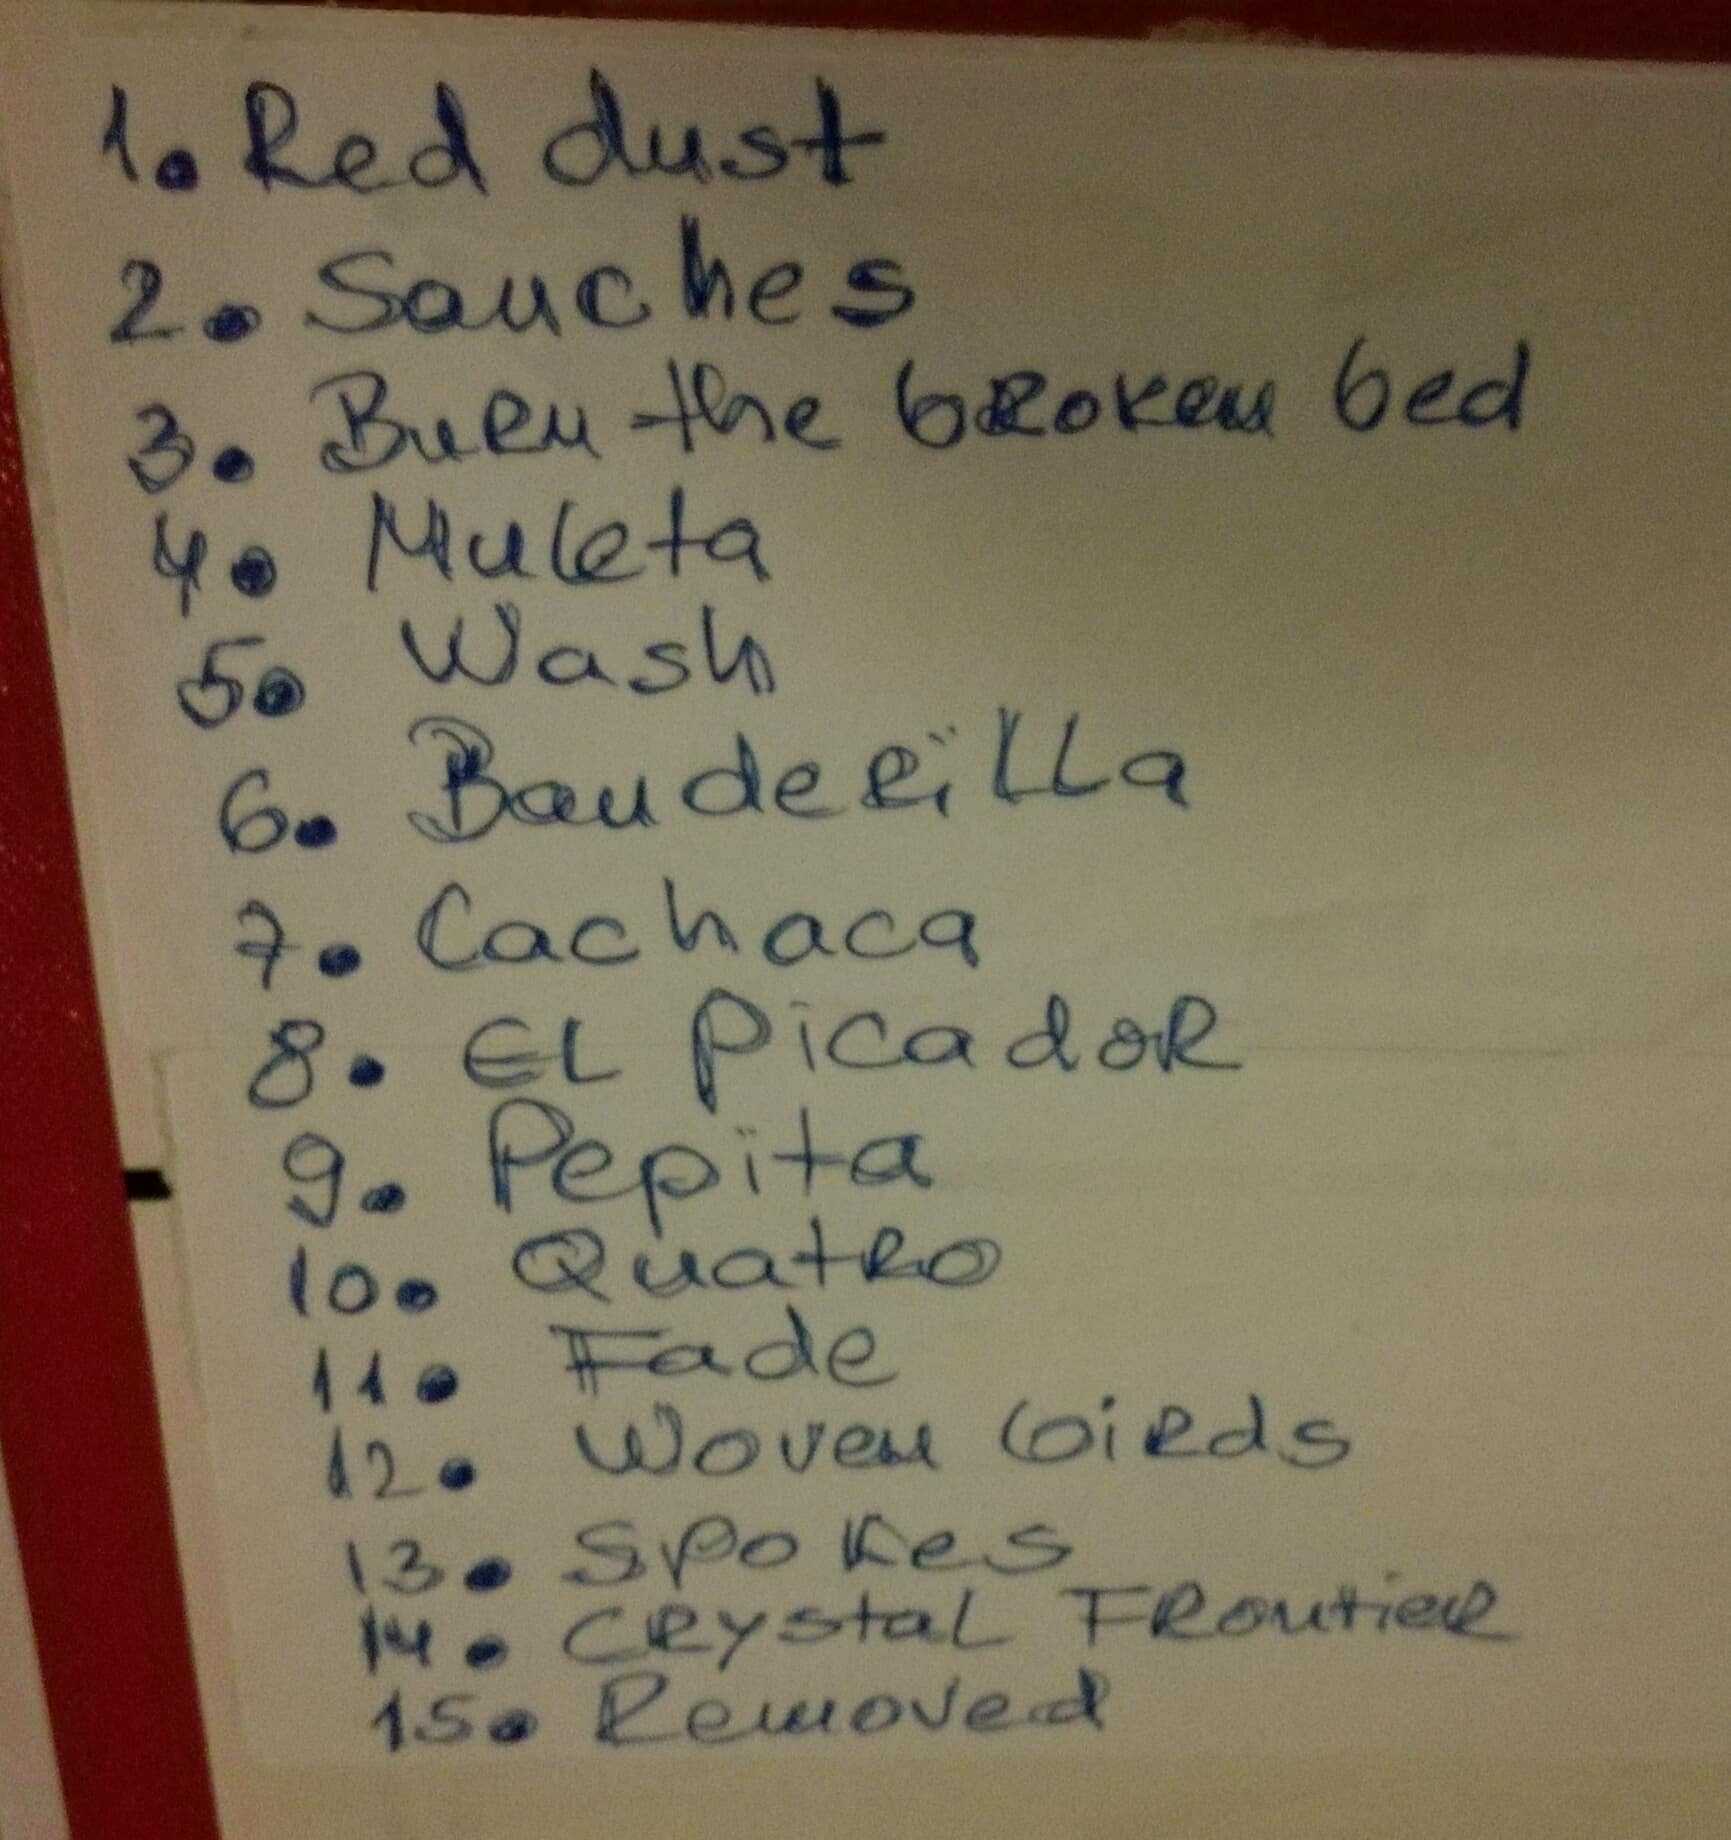 1. Red dust
2. Sanches
3. Burn the broken bed
4. Muleta
5. Wash
6. Banderilla
7. Cachaca
8. EL Picador
9. Pepita
10. Quatro
11. Fade
12. Woven birds
13. Spokes
14. Crystal Frontier
15. Removed